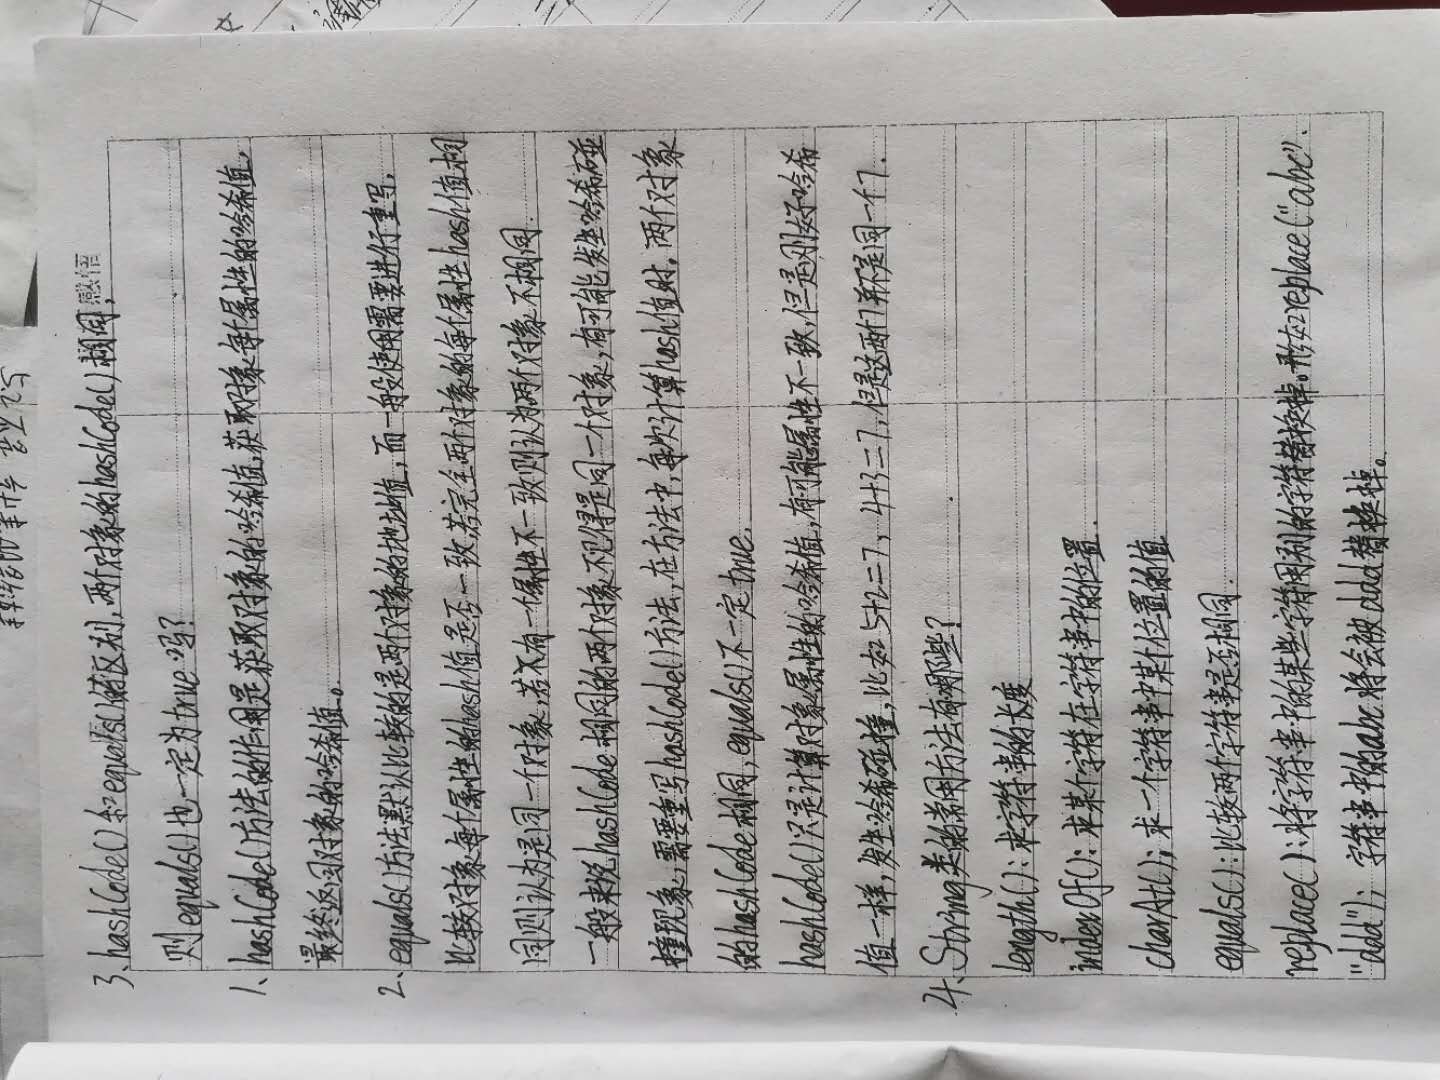 感悟
3、hashCode()和equals()的区别,两个对象的hashCode()相同,
则equals()也一定为true吗?
1、hashCode()方法的作用是获取对象的哈希值,获取对象每个属性的哈希值,
最终返回对象的哈希值。
2、equals()方法默认比较的是两个对象的地址值,而一般使用需要进行重写,
比较对象每个属性的hash值是否一致,若完全两个对象的每个属性hash值相
同则认为是同一个对象,若有一个属性不一致则认为两个对象不相同.
一般来说hashCode相同的两个对象不见得是同一个对象,有可能发生哈希碰
撞现象,需要重写hashCode()方法,在方法中,每次计算hash值时,两个对象
的hashCode相同,equals()不一定true.
hashCode()只是计算对象属性的哈希值,有可能属性不一致,但是刚好哈希
值一样,发生哈希碰撞,比如5+2=7,4+3=7,但是这两个7不是同一个7.
4、String类的常用方法有哪些?
length():求字符串的长度
indexOf():求某个字符在字符串中的位置.
charAt();求一个字符串中某个位置的值
equals():比较两个字符串是否相同.
replace():将字符串中的某些字符用别的字符替换掉。形如replace("abc".
"add");字符串中的abc将会被add替换掉。